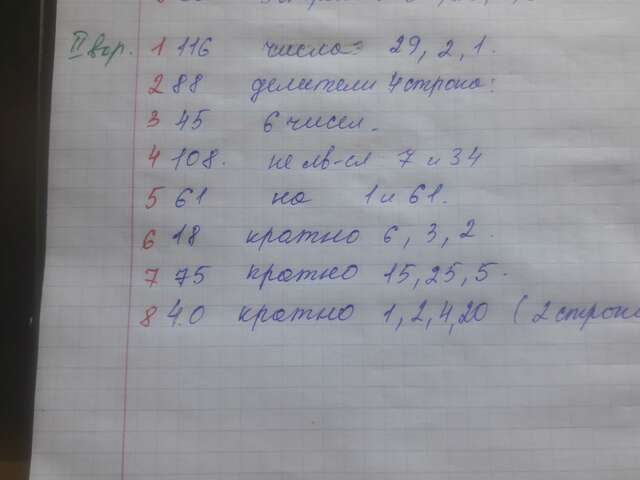 II вар. 1 116 числа: 29, 2, 1.
2 88 делители 4 строка:
3 45 6 чисел.
4 108. не яв-ся 7 и 34
5 61 на 1 и 61.
6 18 кратно 6, 3, 2.
7 75 кратно 15, 25, 5.
8 40 кратно 1, 2, 4, 20 (2 строк